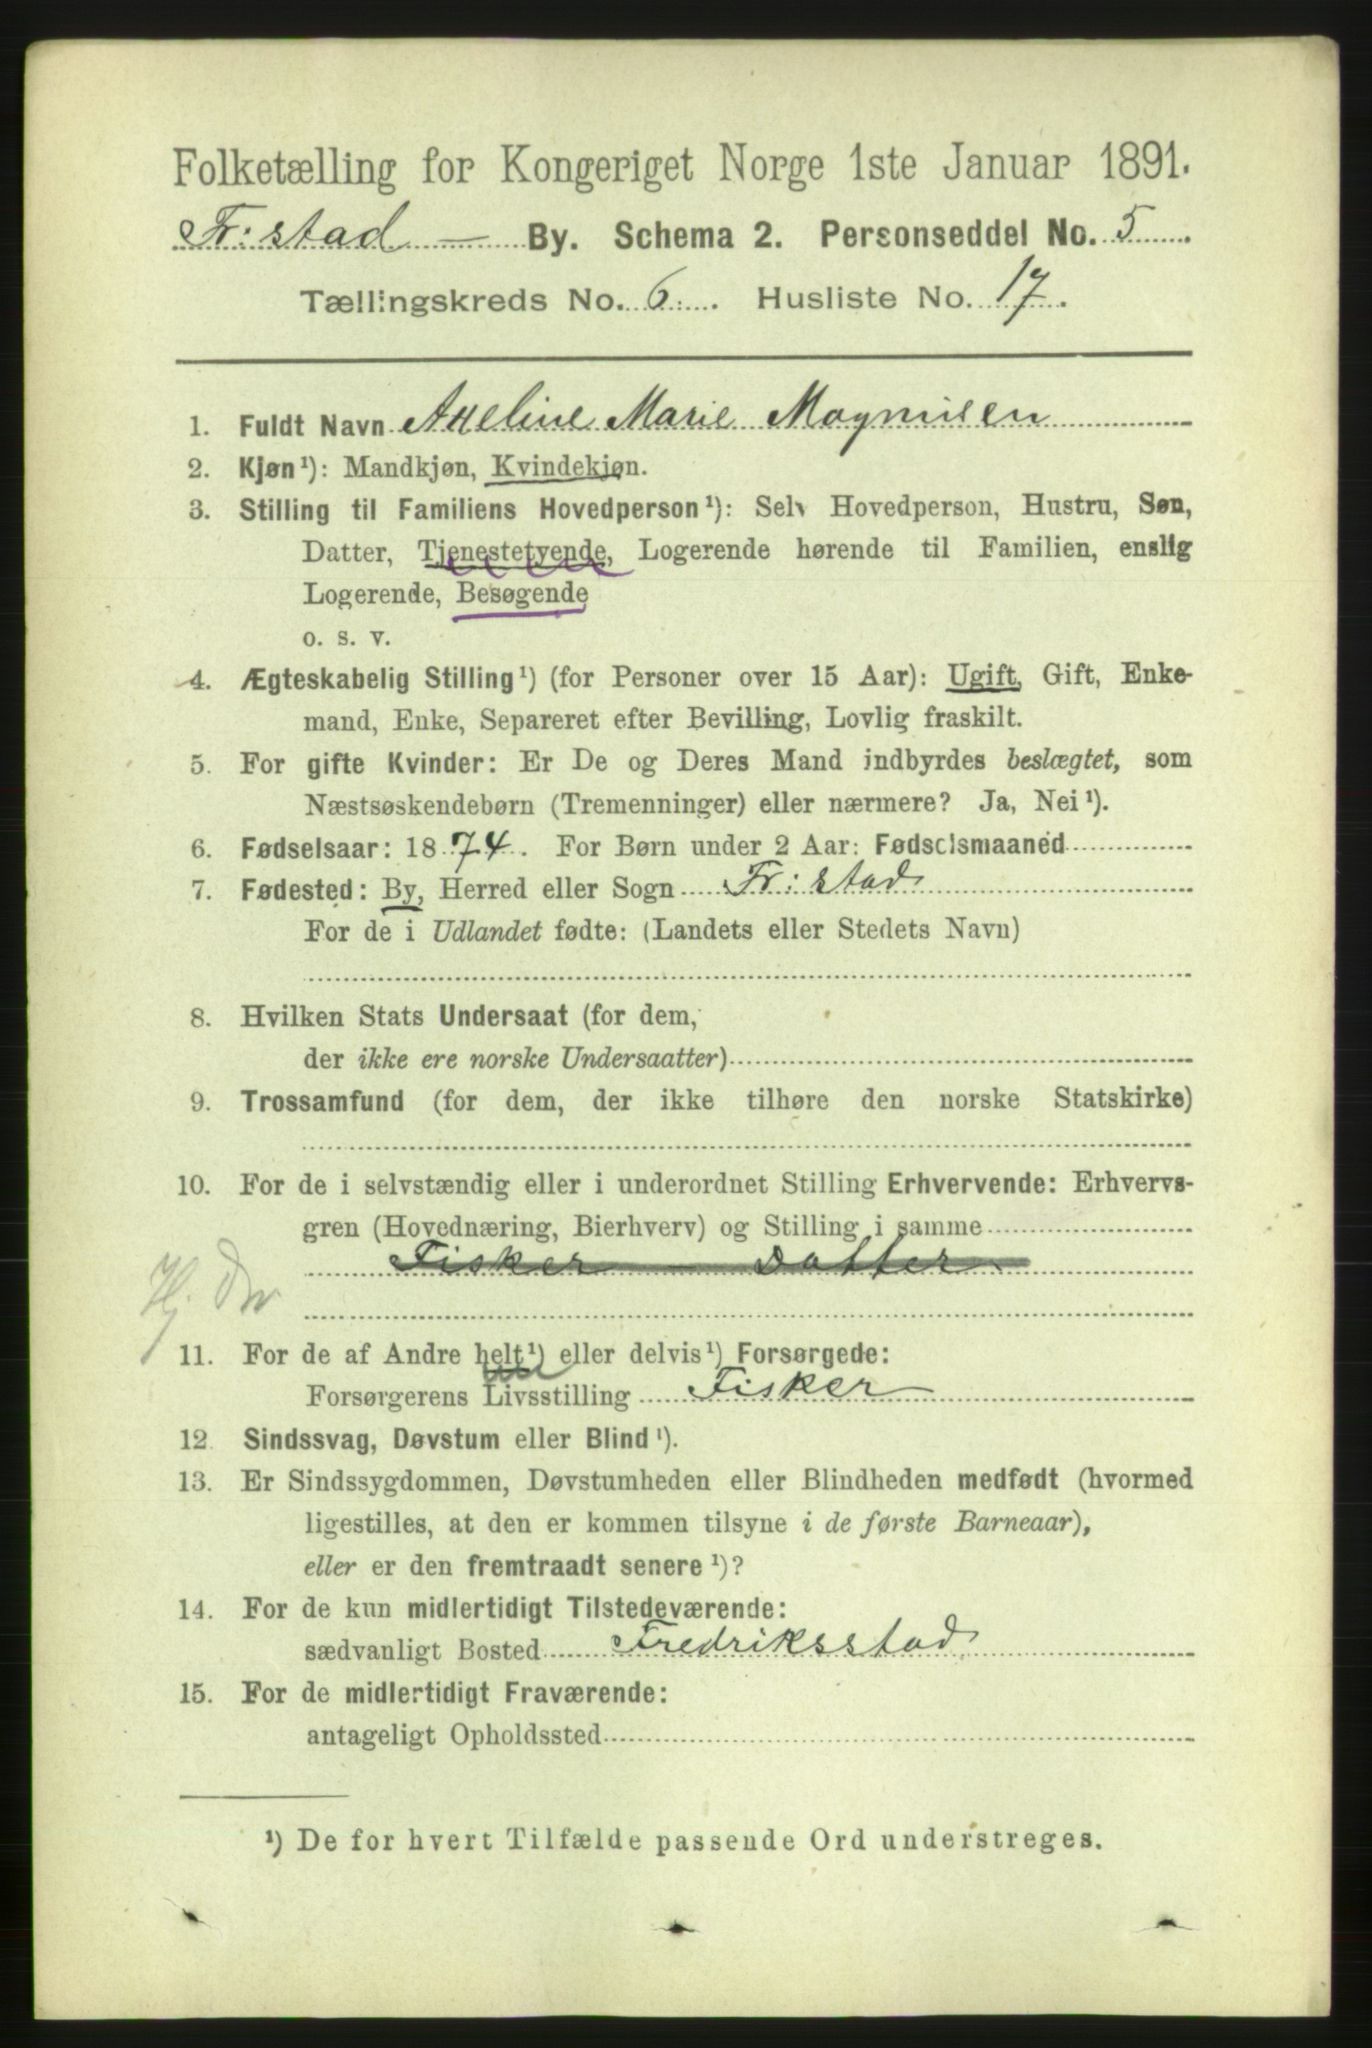 Folketælling for Kongeriget Norge 1ste Januar 1891.
Fr: stad — By. Schema 2. Personseddel No. 5
Tællingskreds No. 6. Husliste No. 17.
1. Fuldt Navn Axeline Marie Magnusen
2. Kjøn¹): Mandkjøn, Kvindekjøn.
3. Stilling til Familiens Hovedperson¹): Selv Hovedperson, Hustru, Søn,
Datter, Tjenestetyende, Logerende hørende til Familien, enslig
Logerende, Besøgende
o. s. v.
4. Ægteskabelig Stilling¹) (for Personer over 15 Aar): Ugift, Gift, Enke-
mand, Enke, Separeret efter Bevilling, Lovlig fraskilt.
5. For gifte Kvinder: Er De og Deres Mand indbyrdes beslægtet, som
Næstsøskendebørn (Tremenninger) eller nærmere? Ja, Nei¹).
6. Fødselsaar: 1874. For Børn under 2 Aar: Fødselsmaaned
7. Fødested: By, Herred eller Sogn Fr: stad
For de i Udlandet fødte: (Landets eller Stedets Navn)
8. Hvilken Stats Undersaat (for dem,
der ikke ere norske Undersaatter)
9. Trossamfund (for dem, der ikke tilhøre den norske Statskirke)
10. For de i selvstændig eller i underordnet Stilling Erhvervende: Erhvervs-
gren (Hovednæring, Bierhverv) og Stilling i samme
Fisker — Datter
Hj. Dtr
11. For de af Andre helt¹) eller delvis¹) Forsørgede:
Forsørgerens Livsstilling Fisker
12. Sindssvag, Døvstum eller Blind¹).
13. Er Sindssygdommen, Døvstumheden eller Blindheden medfødt (hvormed
ligestilles, at den er kommen tilsyne i de første Barneaar),
eller er den fremtraadt senere¹)?
14. For de kun midlertidigt Tilstedeværende:
sædvanligt Bosted Fredriksstad
15. For de midlertidigt Fraværende:
antageligt Opholdssted
¹) De for hvert Tilfælde passende Ord understreges.